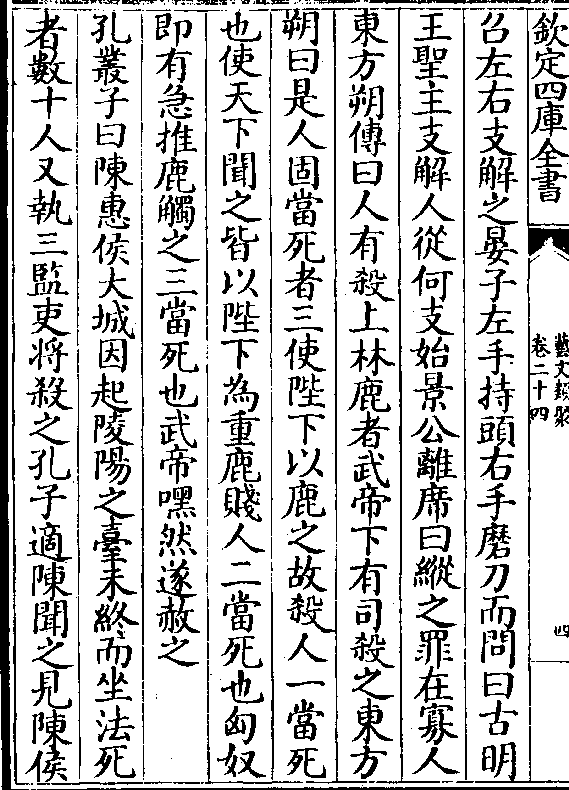 欽定四庫全書
藝文類聚
卷二十四
四
召左右支解之晏子左手持頭右手磨刀而問曰古明
王聖主支解人從何支始景公離席曰縱之罪在寡人
東方朔傳曰人有殺上林鹿者武帝下有司殺之東方
朔曰是人固當死者三使陛下以鹿之故殺人一當死
也使天下聞之皆以陛下為重鹿賤人二當死也匈奴
即有急推鹿觸之三當死也武帝嘿然遂赦之
孔叢子曰陳惠侯大城因起陵陽之臺未終而坐法死
者數十人又執三監吏將殺之孔子適陳聞之見陳侯